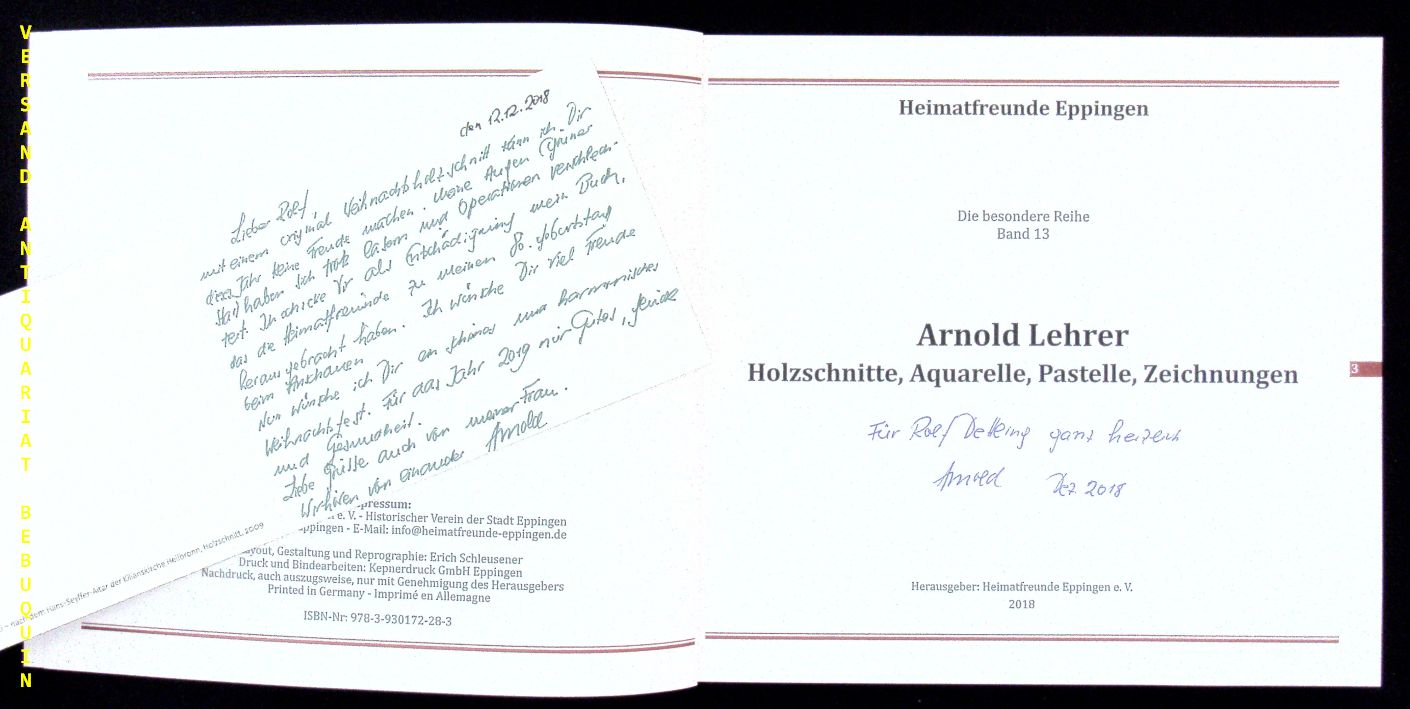 VERSAND ANTIQUARIAT BEBUQUIN
den 12.12.2018
Lieber Rolf,
mit einem original Weihnachtsholzschnitt kann ich Dir
dieses Jahr keine Freude machen. Meine Augen (Grüner
Star) haben sich trotz Lasern und Operationen verschlech-
tert. Ich schicke Dir als Entschädigung mein Buch,
das die Heimatfreunde zu meinem 80. Geburtstag
herausgebracht haben. Ich wünsche Dir viel Freude
beim Anschauen
Nun wünsche ich Dir ein schönes und harmonisches
Weihnachtsfest. Für das Jahr 2019 nur Gutes, Freude
und Gesundheit.
Liebe Grüsse auch von meiner Frau.
Wir hören von einander Arnold
nach dem Hans-Seyffer-Altar der Kilianskirche Heilbronn, Holzschnitt, 2009
pressum:
e. V. - Historischer Verein der Stadt Eppingen
ppingen - E-Mail: info@heimatfreunde-eppingen.de
ayout, Gestaltung und Reprographie: Erich Schleusener
Druck und Bindearbeiten: Kepnerdruck GmbH Eppingen
Nachdruck, auch auszugsweise, nur mit Genehmigung des Herausgebers
Printed in Germany - Imprimé en Allemagne
ISBN-Nr: 978-3-930172-28-3
Heimatfreunde Eppingen
Die besondere Reihe
Band 13
Arnold Lehrer
Holzschnitte, Aquarelle, Pastelle, Zeichnungen
3
Für Rolf Dettling ganz herzlich
Arnold Dez. 2018
Herausgeber: Heimatfreunde Eppingen e. V.
2018